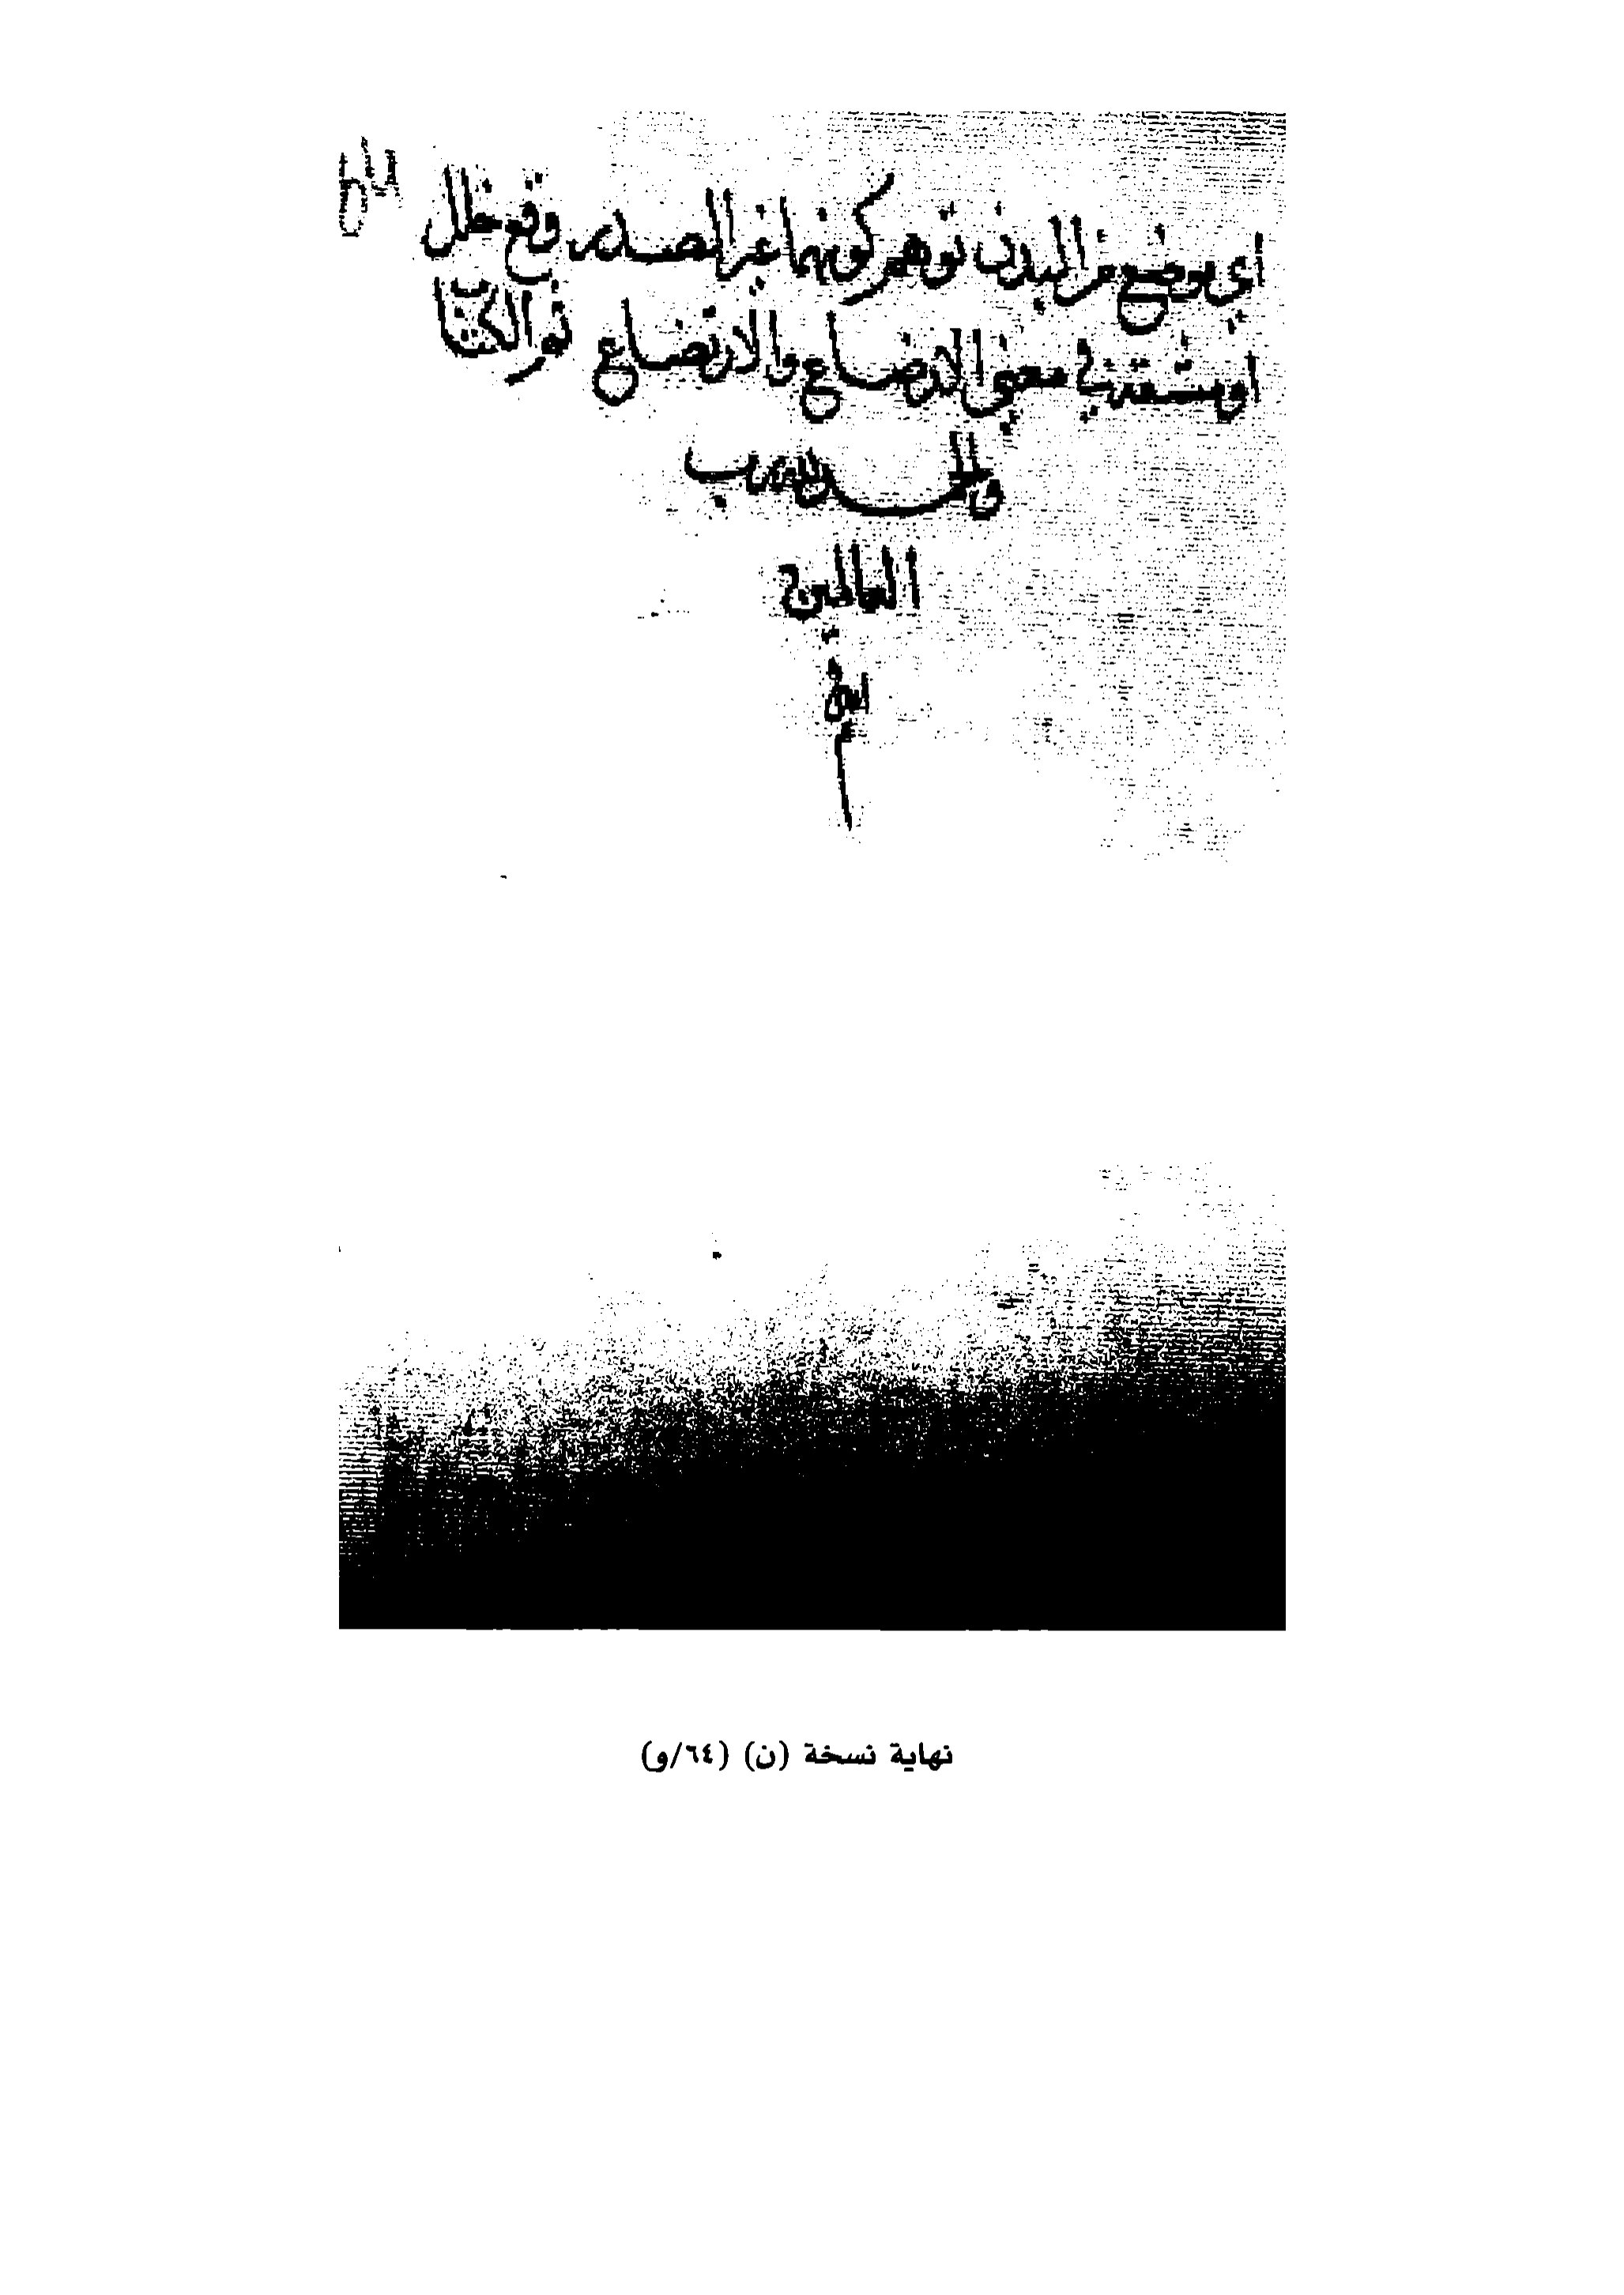 اي موضع من البدن توهم كونها عن الصدر وقع خلل
او مشقة في معنى الارضاع والارتضاع تم الكتاب
والحمد لله رب
العالمين
امين
نهاية نسخة (ن) (٦٤/و)